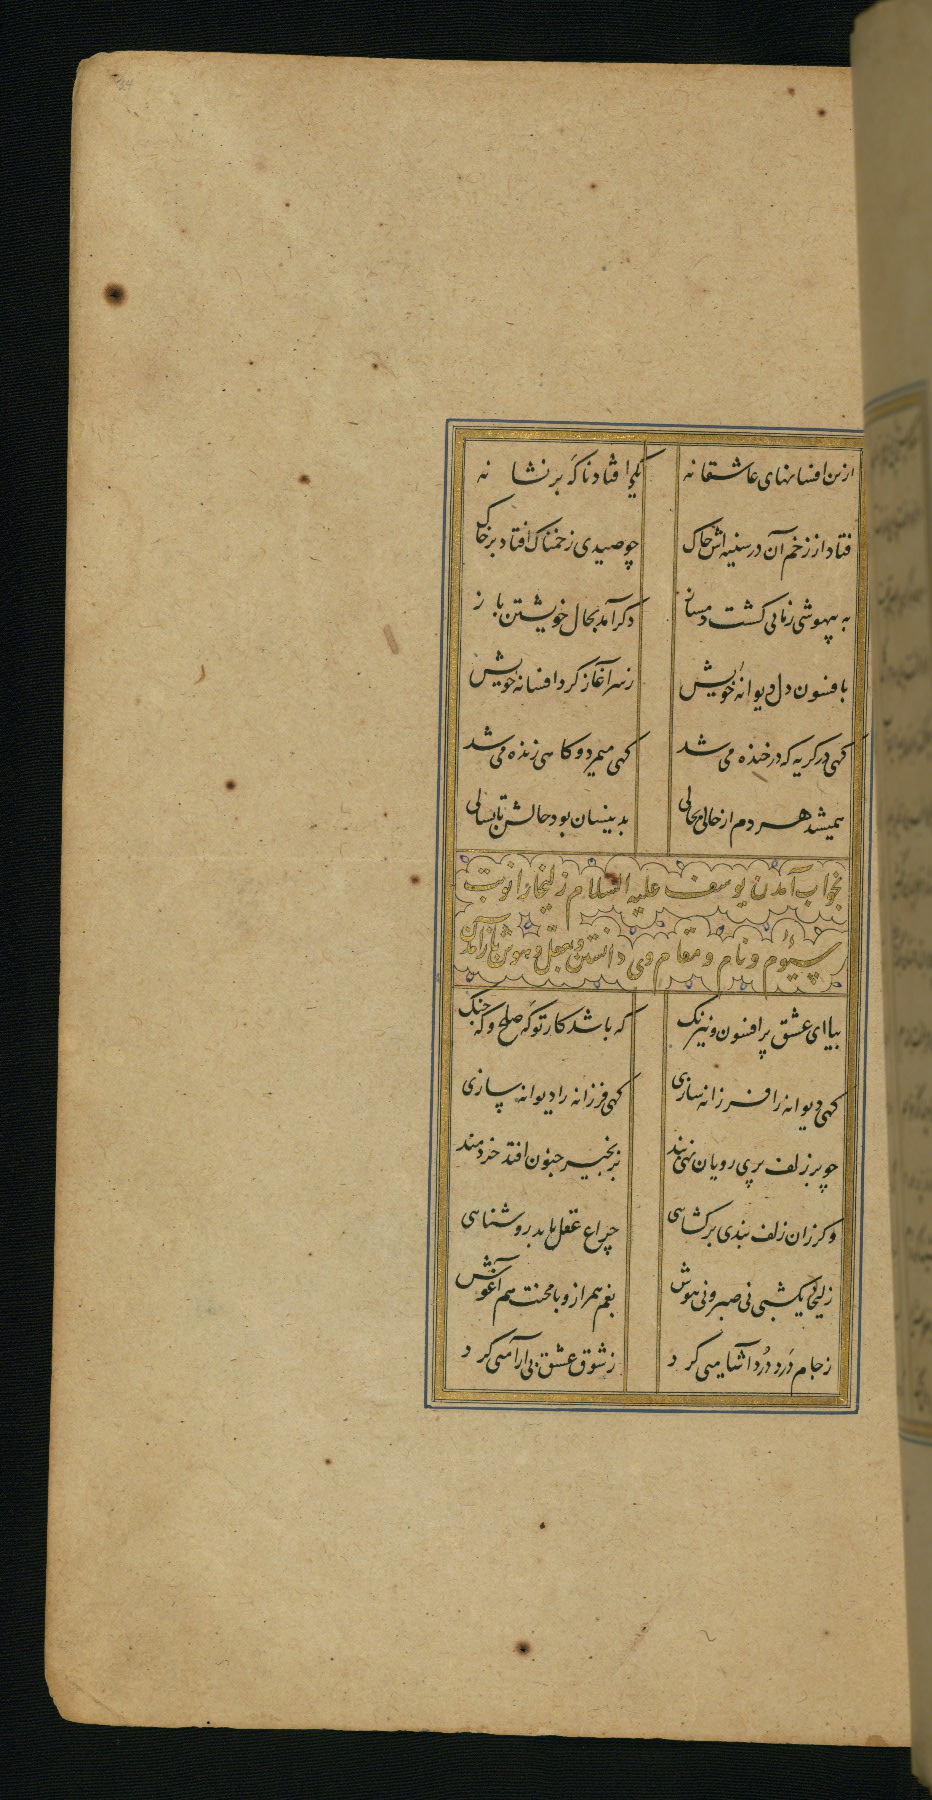 34
ازین افسانهای عاشقانه یکی افتاد ناگه بر نشانه
فتاد از زخم آن در سینه اش خاک چو صیدی زخمناک افتاد بر خاک
به بیهوشی زمانی گشت دمساز دکر آمد بحال خویشتن باز
بافسون دل دیوانه خویش ز سر آغاز کرد افسانه خویش
کهی در کریه که در خنده می شد کهی میمرد و کاهی زنده می شد
همیشد هر دم از حالی بحالی بدینسان بود حالش تا بسالی
بخواب آمدن یوسف علیه السلام زلیخا را نوبت
سیوم و نام و مقام وی دانستن و بعقل و هوش باز آمدن
بیا ای عشق پر افسون و نیرنک که باشد کار تو که صلح و که جنک
کهی دیوانه را فرزانه سازی کهی فرزانه را دیوانه سازی
چو بر زلف پری رویان نهی بند بزنجیر جنون افتد خردمند
وکر زان زلف بندی برکشایی چراغ عقل یابد روشنایی
زلیخا یکشبی نی صبر و نی هوش بغم همراز و با محنت هم آغوش
ز جام درد درد آشامیی کرد ز شوق عشق بی آرامیی کرد